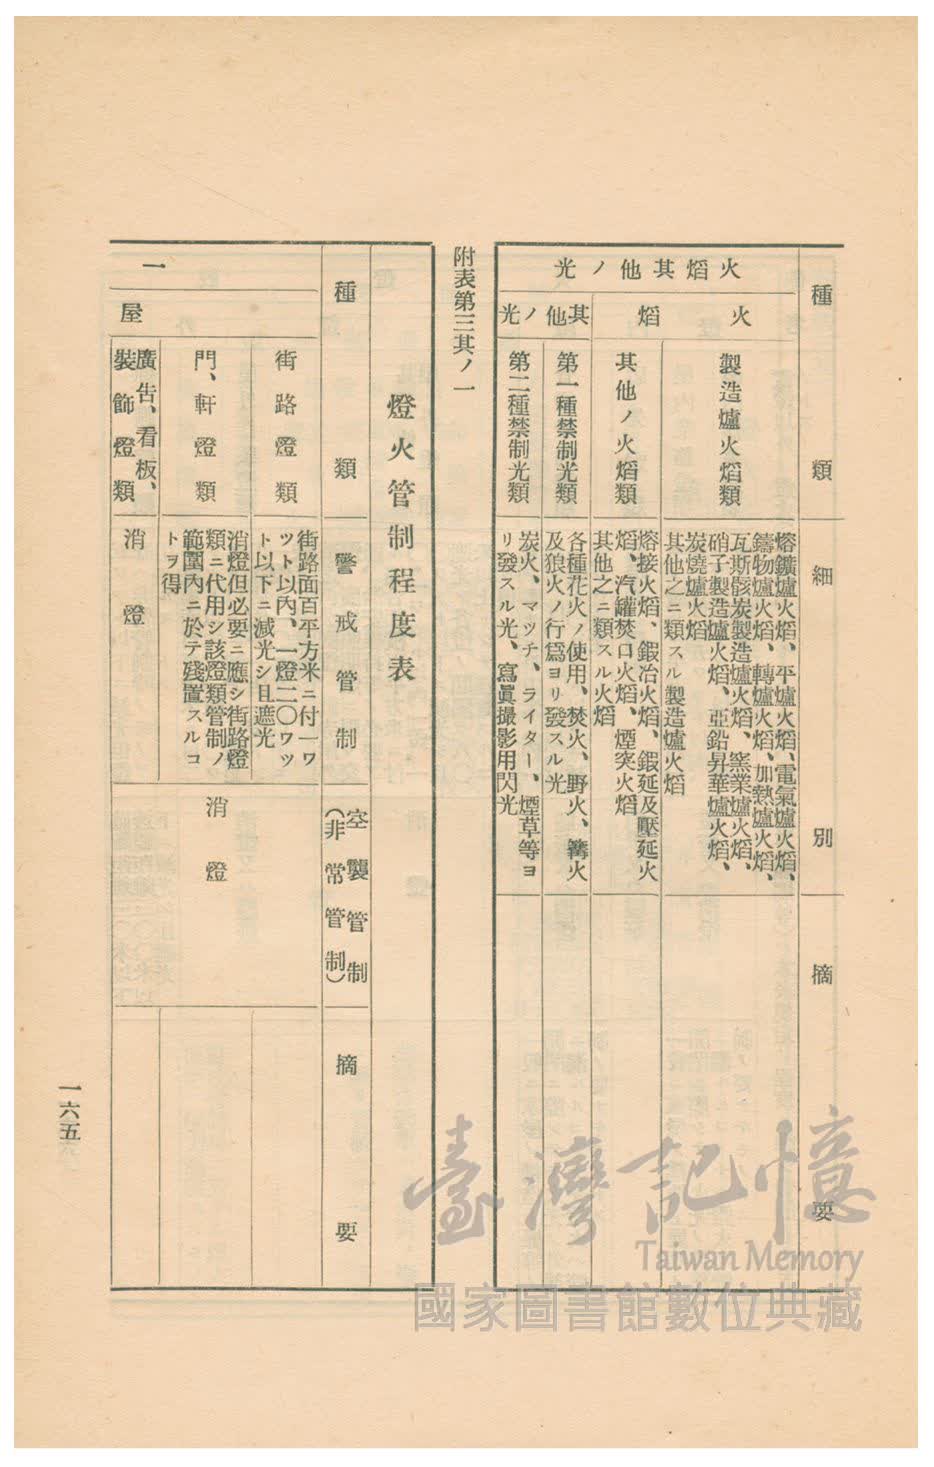 種類
細別
摘要
火焰其他ノ光
火焰
製造爐火焰類
熔鑛爐火焰、平爐火焰、電氣爐火焰、
鑄物爐火焰、轉爐火焰、加熱爐火焰、
瓦斯骸炭製造爐火焰、窯業爐火焰、
硝子製造爐火焰、亞鉛昇華爐火焰、
炭燒爐火焰
其他之ニ類スル製造爐火焰
其他ノ火焰類
熔接火焰、鍜冶火焰、鍜延及壓延火
焰、汽罐焚口火焰、煙突火焰
其他之ニ類スル火焰
其他ノ光
第一種禁制光類
各種花火ノ使用、焚火、野火、篝火
及狼火ノ行爲ヨリ發スル光
第二種禁制光類
炭火、マツチ、ライター、煙草等ヨ
リ發スル光、寫眞撮影用閃光
附表第三其ノ一
燈火管制程度表
種類
警戒管制
空襲管制
(非常管制)
摘要
一
屋
街路燈類
街路面百平方米ニ付一ワ
ツト以內、一燈二〇ワツ
ト以下ニ減光シ且遮光
消燈
門、軒燈類
消燈但必要ニ應シ街路燈
類ニ代用シ該燈類管制ノ
範圍內ニ於テ殘置スルコ
トヲ得
廣告、看板、
裝飾燈類
消燈
一六五
臺灣記憶
Taiwan Memory
國家圖書館數位典藏